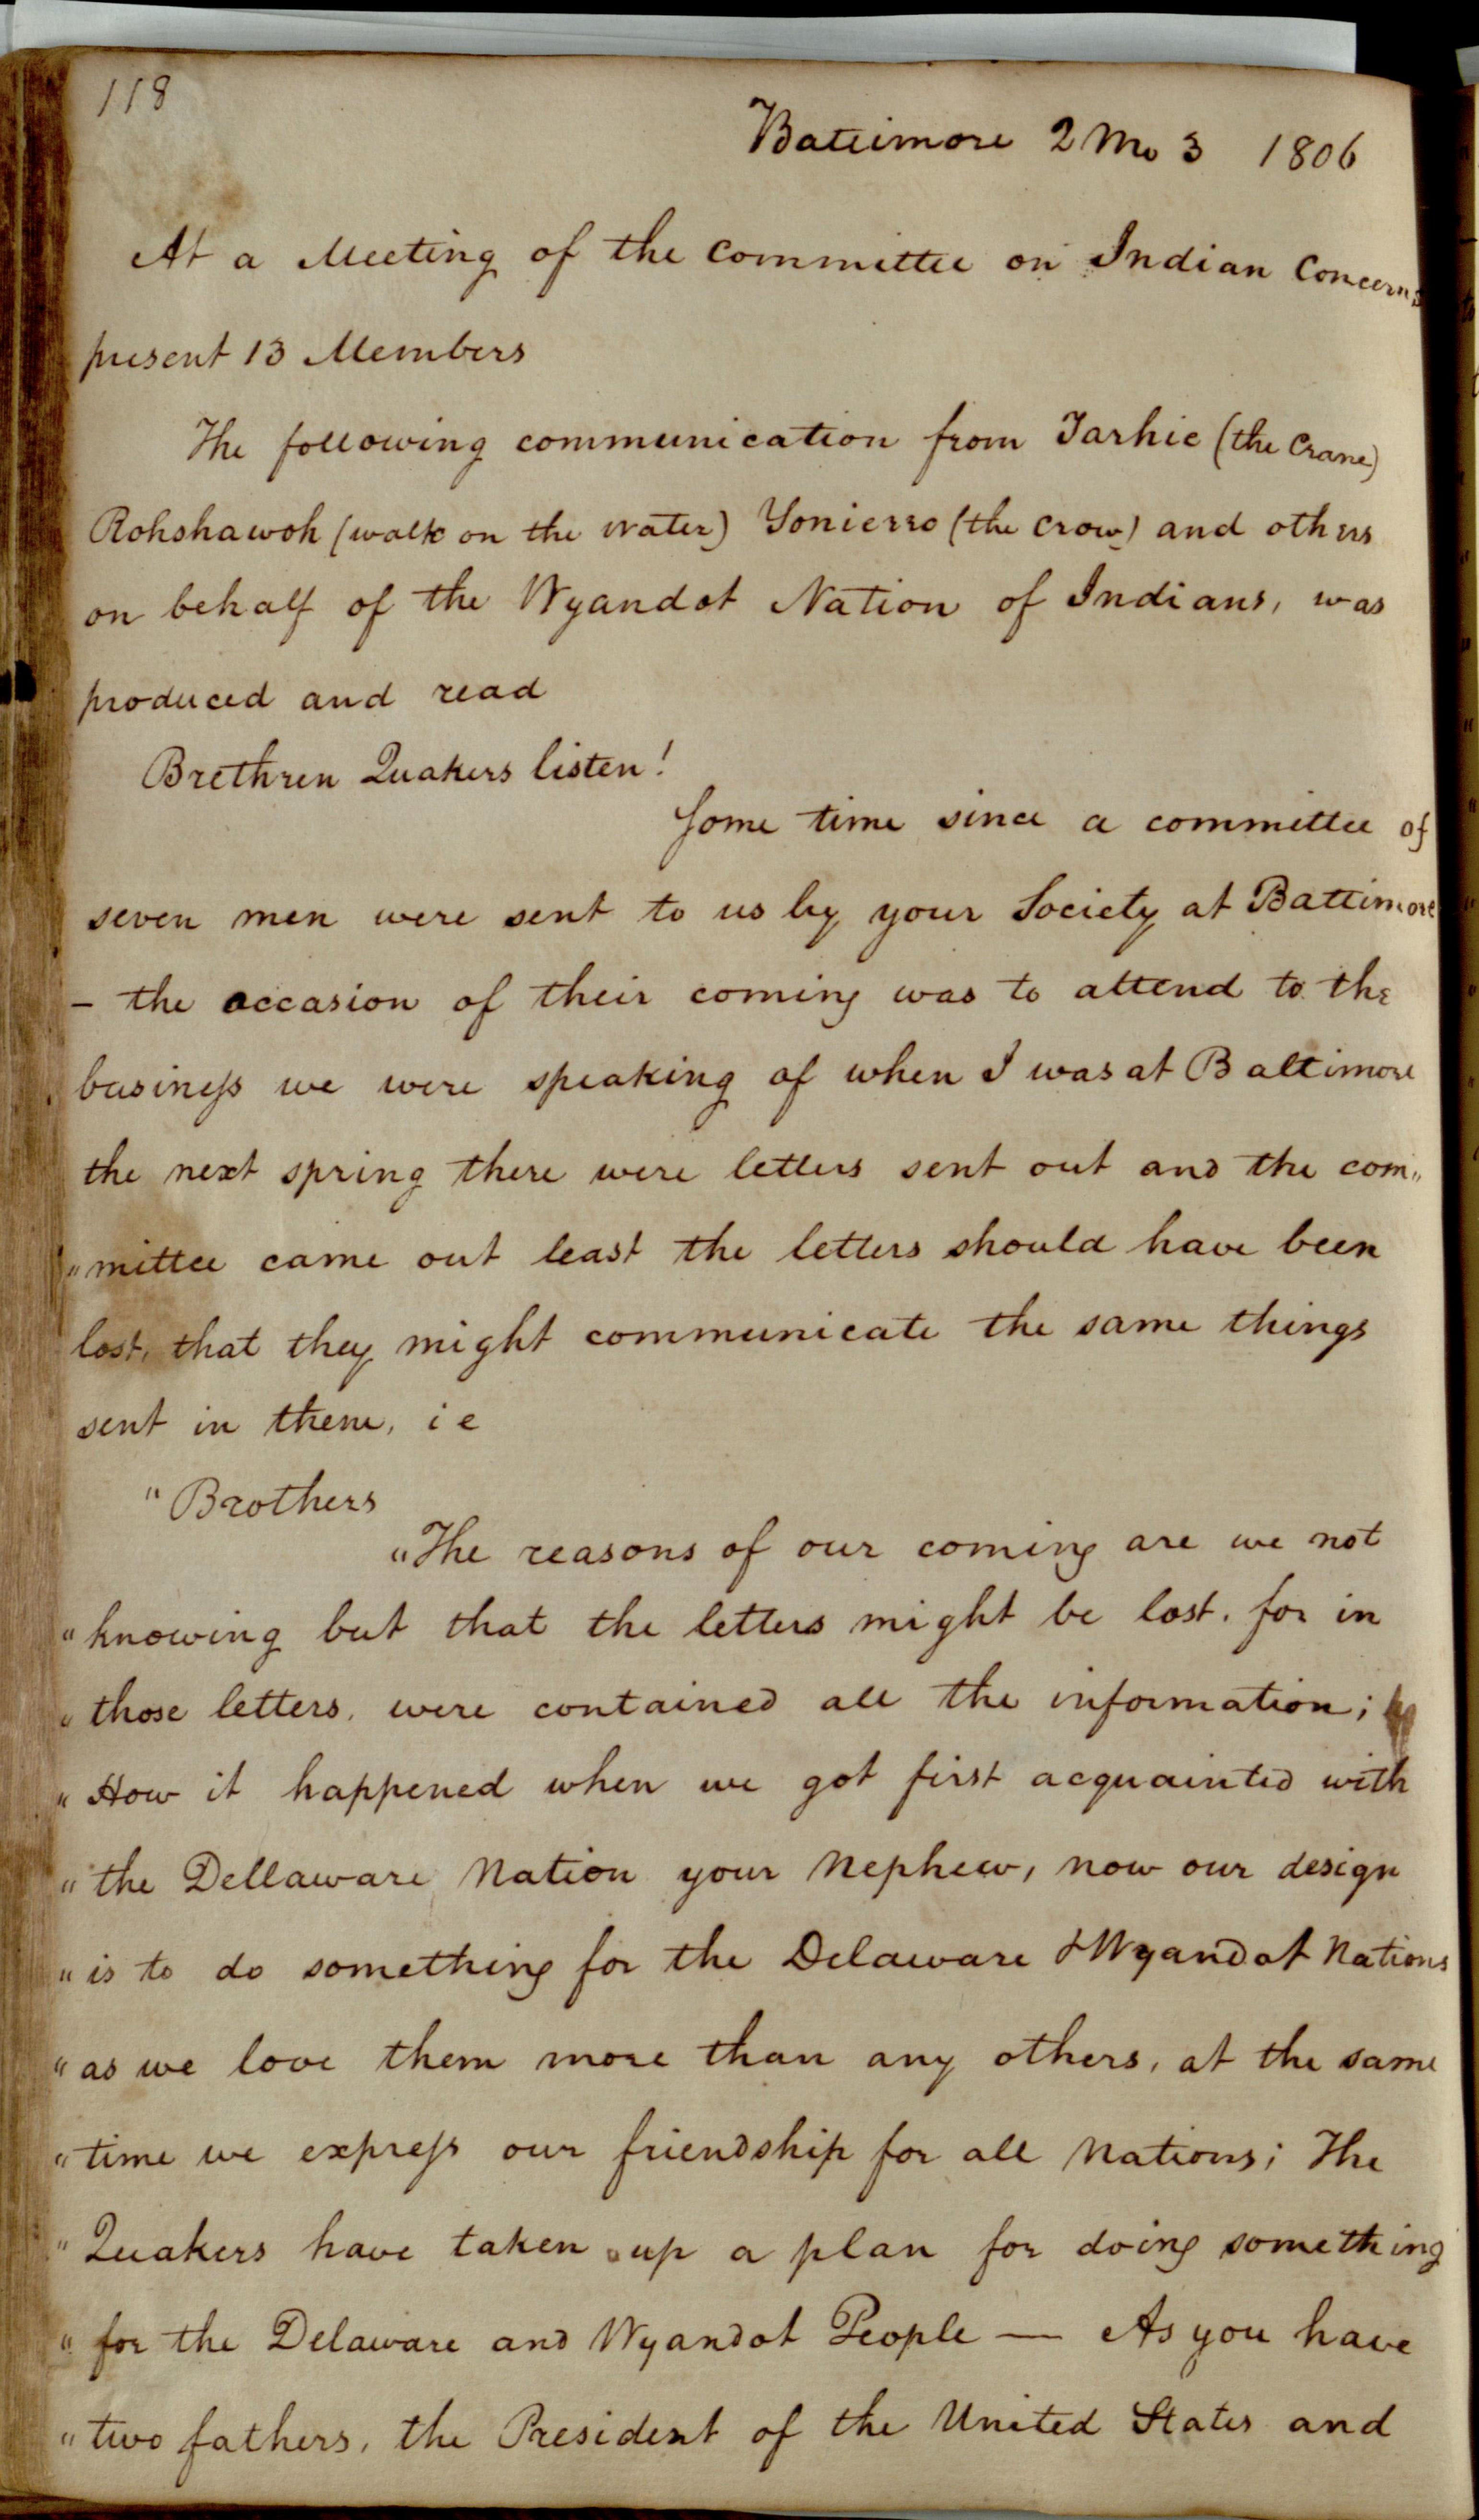 118
Baltimore 2 Mo 3 1806
At a Meeting of the Committee on Indian Concerns
present 13 Members
The following communication from Tarhie (the Crane)
Rohshawoh (walk on the water) Yonierro (the Crow) and others
on behalf of the Wyandot Nation of Indians, was
produced and read
Brethren Quakers listen!
Some time since a committee of
seven men were sent to us by your Society at Baltimore
– the occasion of their coming was to attend to the
business we were speaking of when I was at Baltimore
the next spring there were letters sent out and the com„
„mittee came out least the letters should have been
lost, that they might communicate the same things
sent in them, i e
"Brothers
"The reasons of our coming are we not
"knowing but that the letters might be lost. for in
"those letters, were contained all the information;
"How it happened when we got first acquainted with
"the Dellaware Nation your Nephew, now our design
"is to do something for the Delaware & Wyandot Nations
"as we love them more than any others, at the same
"time we express our friendship for all Nations; The
"Quakers have taken up a plan for doing something
"for the Delaware and Wyandot People — As you have
"two fathers, the President of the United States and